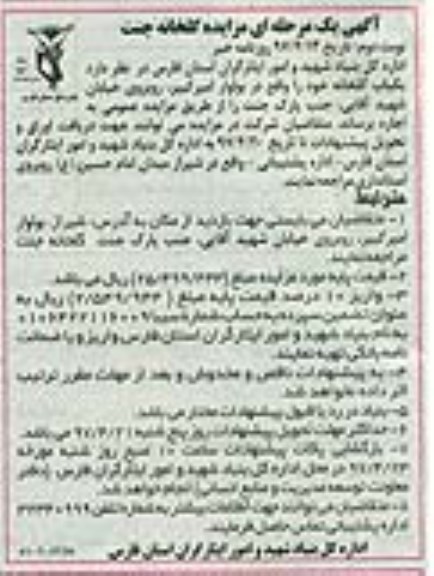 آگهی یک مرحله ای مزایده گلخانه جنت
نوبت دوم: تاریخ ۹۷/۴/۱۴ روزنامه خبر
اداره کل بنیاد شهید و امور ایثارگران استان فارس در نظر دارد
یکباب گلخانه خود را واقع در بولوار امیرکبیر، روبروی خیابان
شهید آقایی، جنب پارک جنت را از طریق مزایده عمومی به
اجاره برساند. متقاضیان شرکت در مزایده می توانند جهت دریافت اوراق و
تحویل پیشنهادات تا تاریخ به اداره کل بنیاد شهید و امور ایثارگران
استان فارس - اداره پشتیبانی - واقع در شیراز میدان امام حسین (ع) روبروی
استانداری مراجعه نمایند.
شرایط
۱- متقاضیان می بایستی جهت بازدید از مکان به آدرس: شیراز، بولوار
امیرکبیر، روبروی خیابان شهید آقایی، جنب پارک جنت گلخانه جنت
مراجعه نمایند.
۲- قیمت پایه مورد مزایده مبلغ ریال می باشد.
۳- واریز ۱۰ درصد قیمت پایه مبلغ ریال به
عنوان تضمین سپرده به حساب شماره سیبا
بنام بنیاد شهید و امور ایثارگران استان فارس واریز و یا ضمانت
نامه بانکی تهیه نمایند.
۴- به پیشنهادات ناقص و مخدوش و بعد از مهلت مقرر ترتیب
اثر داده نخواهد شد.
۵- بنیاد در رد یا قبول پیشنهادات مختار می باشد.
۶- حداکثر مهلت تحویل پیشنهادات روز پنج شنبه ۹۷/۴/۲۱ می باشد.
۷- بازگشایی پاکات پیشنهادات ساعت ۱۰ صبح روز شنبه مورخه
۹۷/۴/۲۳ در محل اداره کل بنیاد شهید و امور ایثارگران فارس (دفتر
معاونت توسعه مدیریت و منابع انسانی) انجام خواهد شد.
۸- متقاضیان می توانند جهت اطلاعات بیشتر به شماره تلفن
اداره پشتیبانی تماس حاصل فرمایند.
اداره کل بنیاد شهید و امور ایثارگران استان فارس